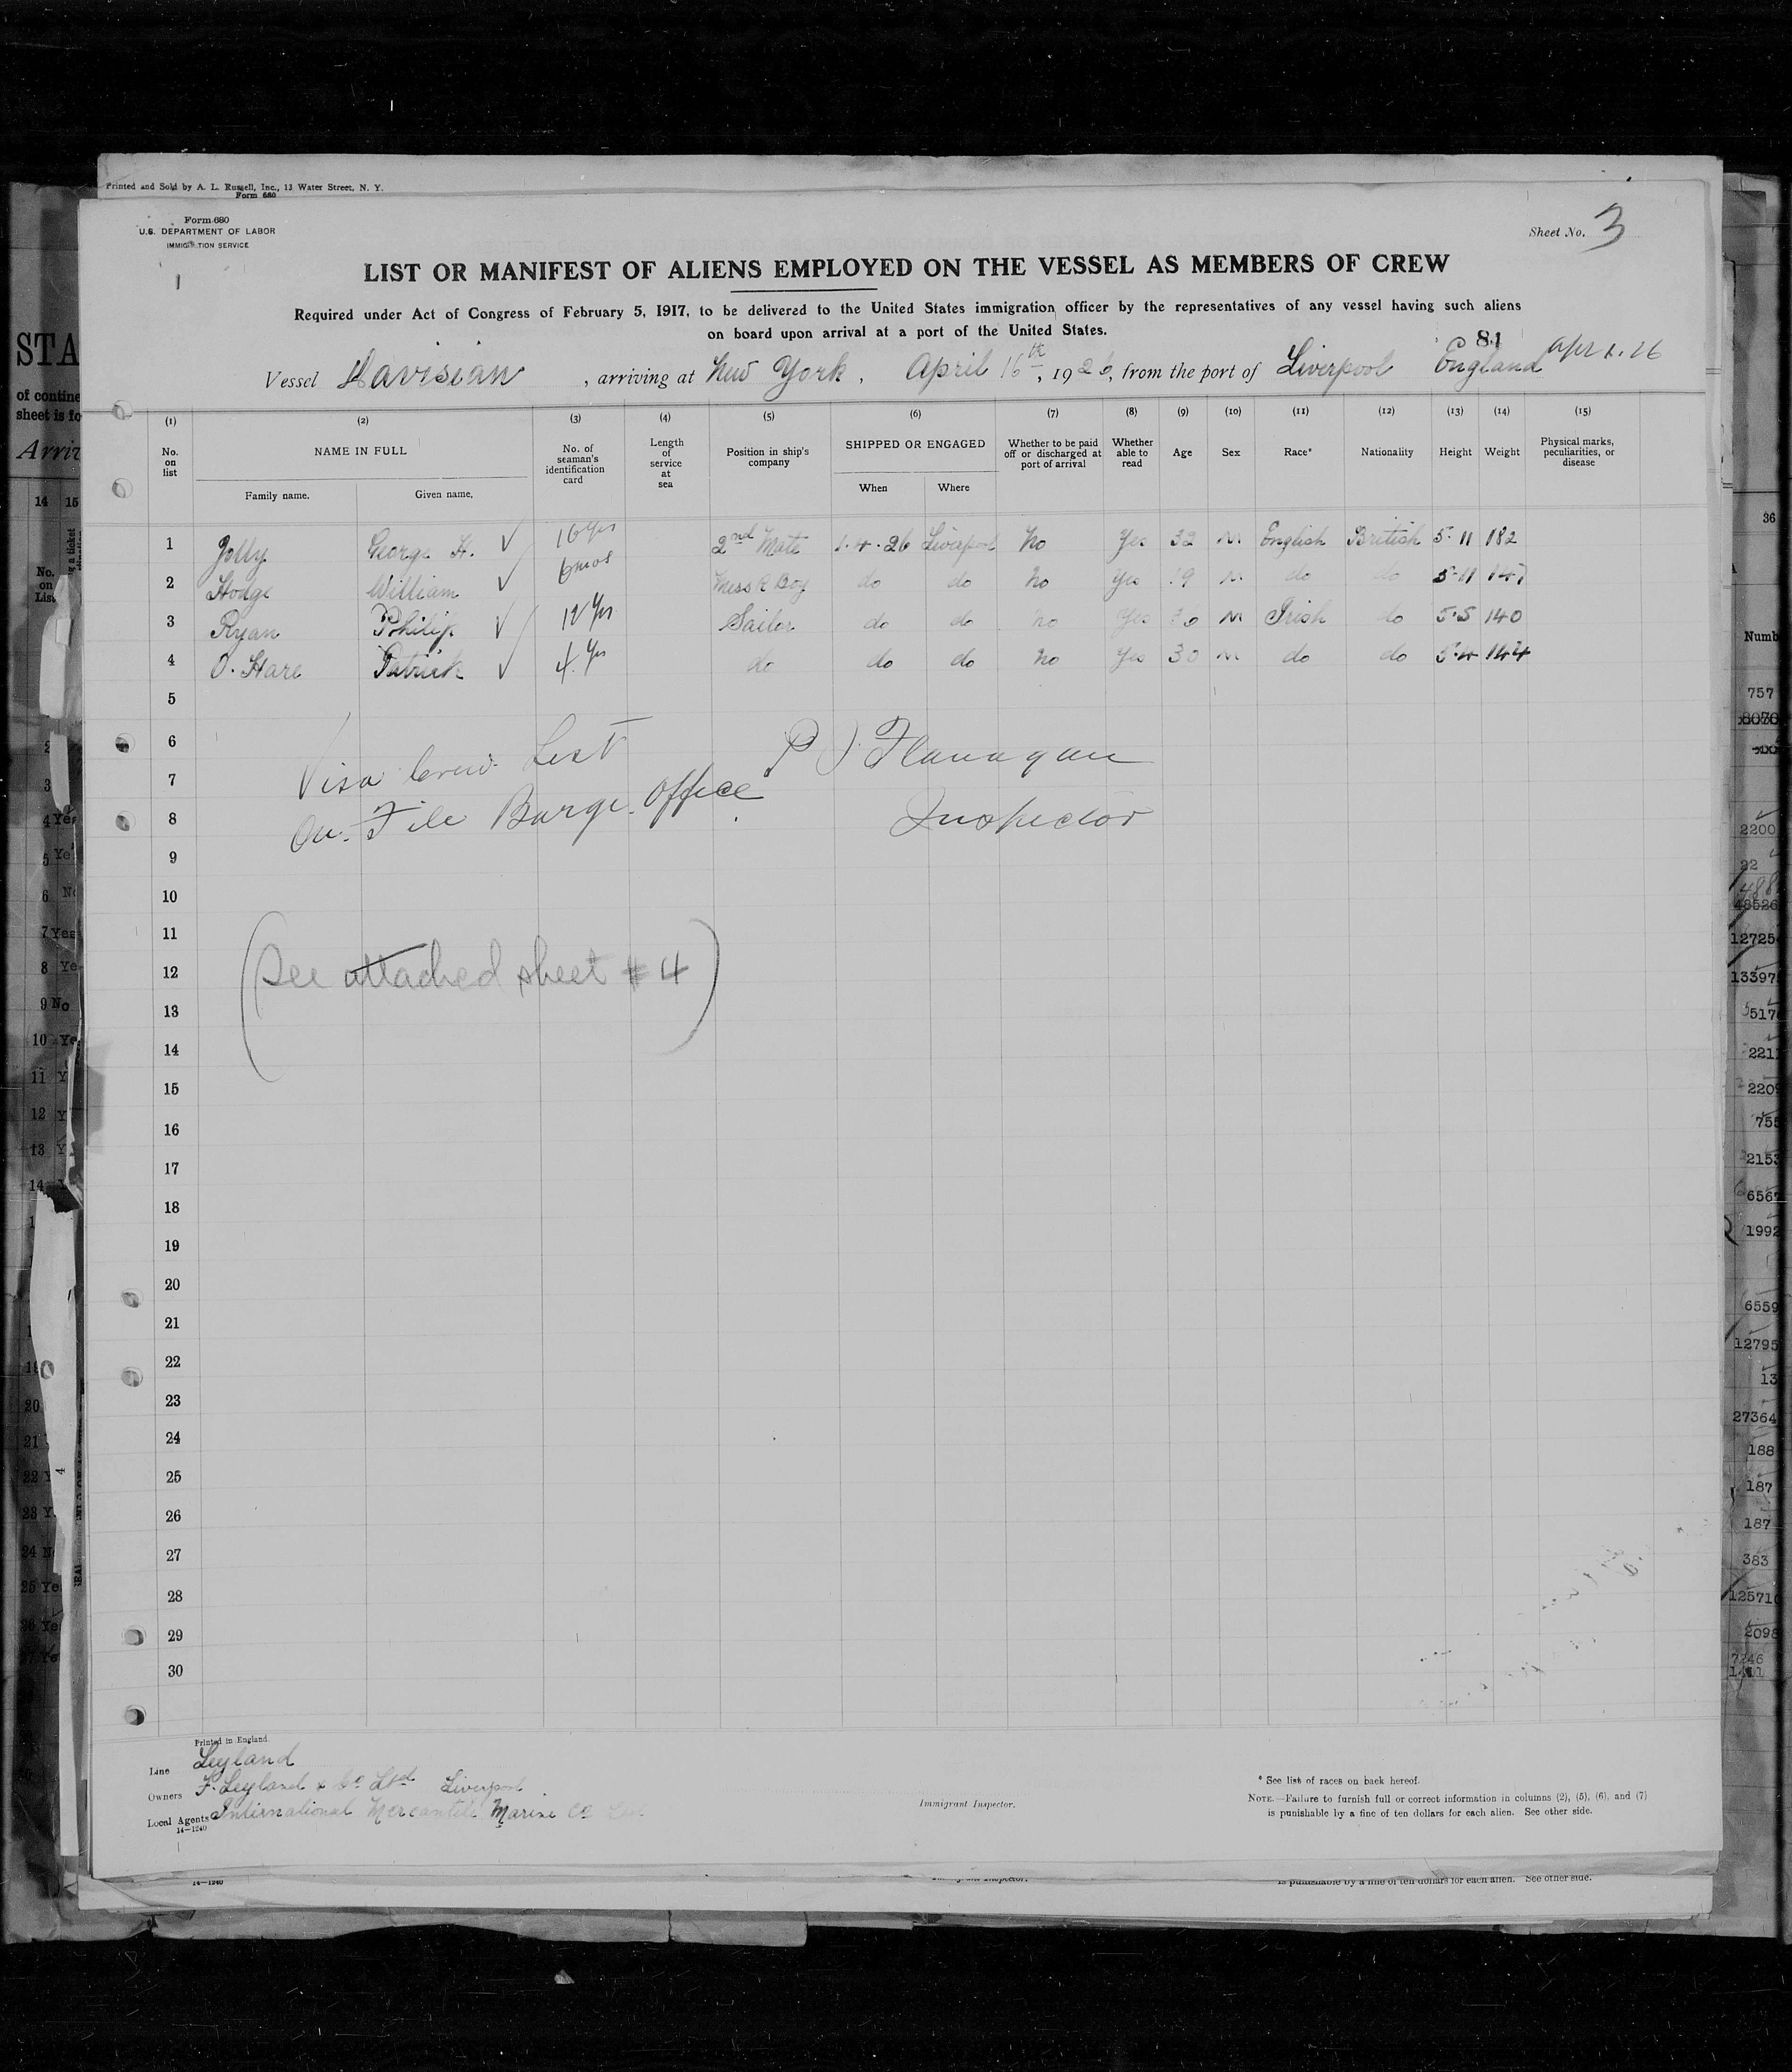 Printed and Sold by A. L. Russell, Inc., 13 Water Street, N. Y.
Form 680
Form 680
U.S. DEPARTMENT OF LABOR
IMMIGRATION SERVICE
Sheet No. 3
LIST OR MANIFEST OF ALIENS EMPLOYED ON THE VESSEL AS MEMBERS OF CREW
Required under Act of Congress of February 5, 1917, to be delivered to the United States immigration officer by the representatives of any vessel having such aliens
on board upon arrival at a port of the United States.
81
Vessel Davisian, arriving at New York, April 16th, 1926, from the port of Liverpool England Apr 1. 26
(1) (2) (3) (4) (5) (6) (7) (8) (9) (10) (11) (12) (13) (14) (15)
No. on list NAME IN FULL No. of seaman's identification card Length of service at sea Position in ship's company SHIPPED OR ENGAGED Whether to be paid off or discharged at port of arrival Whether able to read Age Sex Race* Nationality Height Weight Physical marks, peculiarities, or disease
Family name. Given name. When Where
1 Jolly George H. ✓ 16 yrs 2nd Mate 1.4.26 Liverpool No Yes 32 M English British 5.11 182
2 Hodge William ✓ 6 mos Mess R Boy do do No Yes 19 M do do 5.11 147
3 Ryan Philip ✓ 12 Yrs Sailor do do No Yes 36 M Irish do 5.5 140
4 O. Hare Patrick ✓ 4 Yrs do do do No Yes 30 M do do 5.4 144
5
6
7
8
9
10
11
12
13
14
15
16
17
18
19
20
21
22
23
24
25
26
27
28
29
30
Visa Crew List
On File Barge Office
P J Flanagan
Inspector
(See attached sheet #4)
Printed in England.
Line Leyland
Owners F. Leyland & Co Ltd Liverpool
Local Agents International Mercantile Marine Co
14—1240
Immigrant Inspector.
* See list of races on back hereof.
NOTE.—Failure to furnish full or correct information in columns (2), (5), (6), and (7)
is punishable by a fine of ten dollars for each alien. See other side.
14—1240
is punishable by a fine of ten dollars for each alien. See other side.